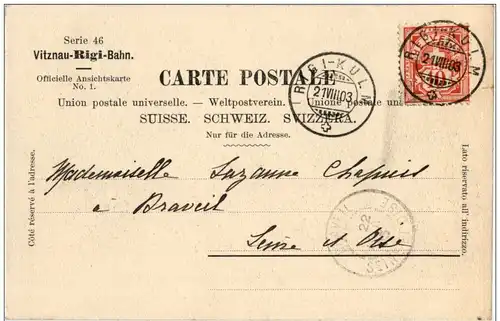 Serie 46
Vitznau-Rigi-Bahn.
Officielle Ansichtskarte
No. 1.
CARTE POSTALE
Union postale universelle. — Weltpostverein. — Unione postale uni
SUISSE. SCHWEIZ. SVIZZERA.
Nur für die Adresse.
RIGI-KULM
21 VIII 03
RIGI-KULM
21 VIII 03
Côté réservé à l'adresse.
Lato riservato all' indirizzo.
Mademoiselle Suzanne
à Draveil
Seine et Oise
22